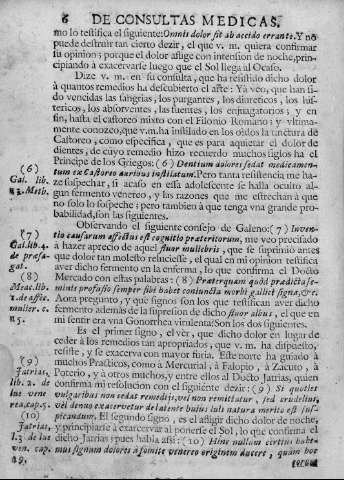 6 DE CONSULTAS MEDICAS,
mo lo testifica el siguiente: Omnis dolor sit ab acido errante. Y no
puede destruir tan cierto dezir, el que v. m. quiera confirmar
su opinion; porque el dolor afluge con intension de noche, prin-
cipiando à exacervarse luego que el Sol llega al Ocaso.
Dize v. m. en su consulta, que ha resistido dicho dolor
à quantos remedios ha descubierto el arte: Ya veo, que han si-
do vencidas las sangrias, los purgantes, los diureticos, los hif-
tericos, los absorventes, las fuentes, los enjuagatorios; y en
fin, hasta el castoreo mixto con el Filonio Romano; y vltima-
mente conozco, que v. m. ha instilado en los oidos la tinctura de
Castoreo, como especifica, que es para aquietar el dolor de
dientes, de cuyo remedio hizo recuerdo muchos siglos ha el
Principe de los Griegos: (6) Dentium dolores sedat medicamen-
tum ex Castoreo auribus instilatum. Pero tanta resistencia me ha-
ze sospechar, si acaso en essa adolescente se halla oculto al-
gun fermento venereo, y las razones que me estrechan à que
no solo lo sospeche; pero tambien à que tenga vna grande pro-
babilidad, son las siguientes.
(6)
Gal. lib.
Meth.
Observando el siguiente consejo de Galeno: (7) Inven-
tio causarum affectus est cognitio præteritorum, me veo precisado
à hazer aprecio de aquel fluor muliebris, que se suprimiò antes
que dolor tan molesto reluciesse, el qual en mi opinion testifica
aver dicho fermento en la enferma, lo que confirma el Docto
Mercado con estas palabras: (8) Præterquam quòd prædicta se-
minis profusio semper sibi habet coniuncta morbi gallici signa, &c.
Aora pregunto, y què signos son los que testifican aver dicho
fermento ademàs de la supresion de dicho fluor albus, el que en
mi sentir era vna Gonorrhea virulenta: Son los dos siguientes.
(7)
Gal. lib. 4.
de præsa-
gat.
(8)
Merc. lib.
2. de affec.
mulier. c.
15.
Es el primer signo, el ver, que dicho dolor en lugar de
ceder à los remedios tan apropriados, que v. m. ha dispuesto,
resiste, y se exacerva con mayor furia. Este norte ha guiado à
muchos Practicos, como à Mercurial, à Falopio, à Zacuto, à
Poterio, y à otros muchos, y entre ellos al Docto Jatrias, quien
confirma mi resolucion con el siguiente dezir: (9) Si quoties
vulgaribus non sedat remedijs, vel non remittatur, sed crudelius,
vèl denuo exacervetur de latente huius luis natura merito est sus-
picandum. El segundo signo, es el afligir dicho dolor de noche,
y principiarse à exacervar al ponerse el Sol, lo que confirma el
dicho Jatrias pues habla assi: (10) Hinc nullum certius habe-
mus signum dolores à fomite venereo originem ducere, quam hoc
(9)
Jatrias,
lib. 2. de
lue vene
rea, cap. 5.
(10)
Jatrias,
l. 3. de lue
ven. cap.
19.